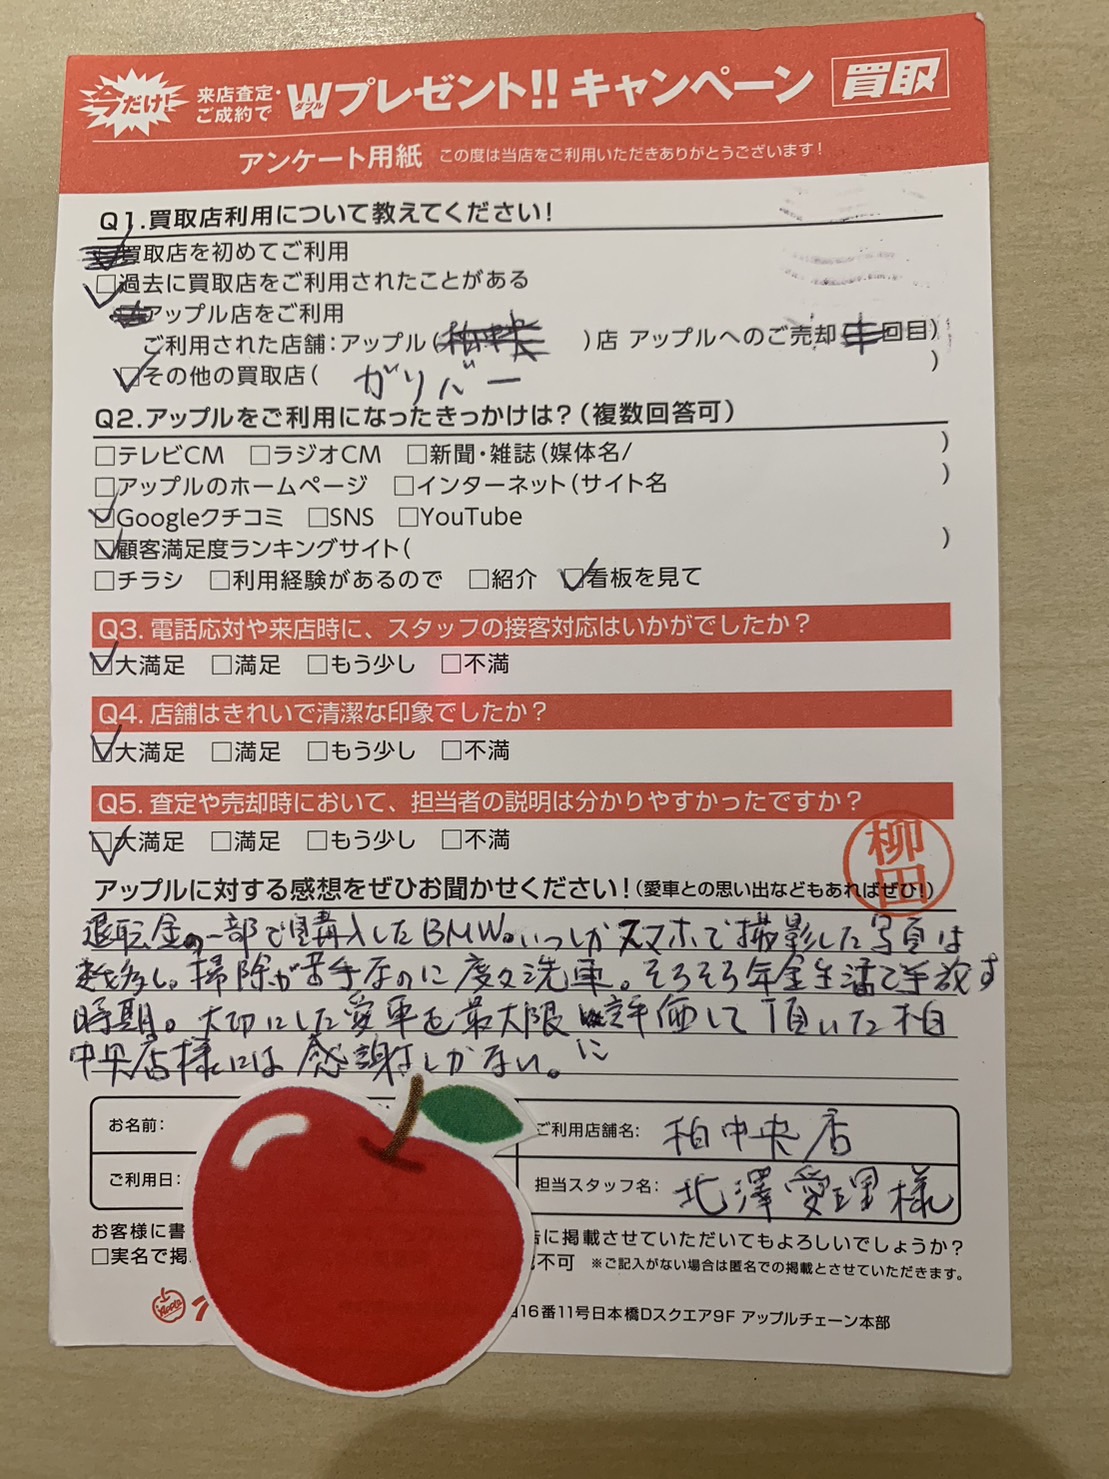 今だけ! 来店査定・ご成約で Wダブルプレゼント!! キャンペーン 買取
アンケート用紙 この度は当店をご利用いただきありがとうございます!
Q1.買取店利用について教えてください!
買取店を初めてご利用
□過去に買取店をご利用されたことがある
アップル店をご利用
ご利用された店舗:アップル(柏中央 )店 アップルへのご売却 回目)
□その他の買取店( ガリバー )
Q2.アップルをご利用になったきっかけは?(複数回答可)
□テレビCM □ラジオCM □新聞・雑誌(媒体名/ )
□アップルのホームページ □インターネット(サイト名 )
□Googleクチコミ □SNS □YouTube
□顧客満足度ランキングサイト( )
□チラシ □利用経験があるので □紹介 □看板を見て
Q3. 電話応対や来店時に、スタッフの接客対応はいかがでしたか?
□大満足 □満足 □もう少し □不満
Q4. 店舗はきれいで清潔な印象でしたか?
□大満足 □満足 □もう少し □不満
Q5. 査定や売却時において、担当者の説明は分かりやすかったですか?
□大満足 □満足 □もう少し □不満
柳田
アップルに対する感想をぜひお聞かせください!(愛車との思い出などもあればぜひ!)
退職金の一部で購入したBMW。いつしかスマホで撮影した写真は
数多し。掃除が苦手なのに度々洗車。そろそろ年金生活で手放す
時期。大切にした愛車を最大限に評価して頂いた柏
中央店様には感謝しかない。
お名前:
ご利用店舗名: 柏中央店
ご利用日:
担当スタッフ名: 北澤愛理様
お客様に書
告に掲載させていただいてもよろしいでしょうか?
□実名で掲
不可 ※ご記入がない場合は匿名での掲載とさせていただきます。
Apple
16番11号日本橋Dスクエア9F アップルチェーン本部